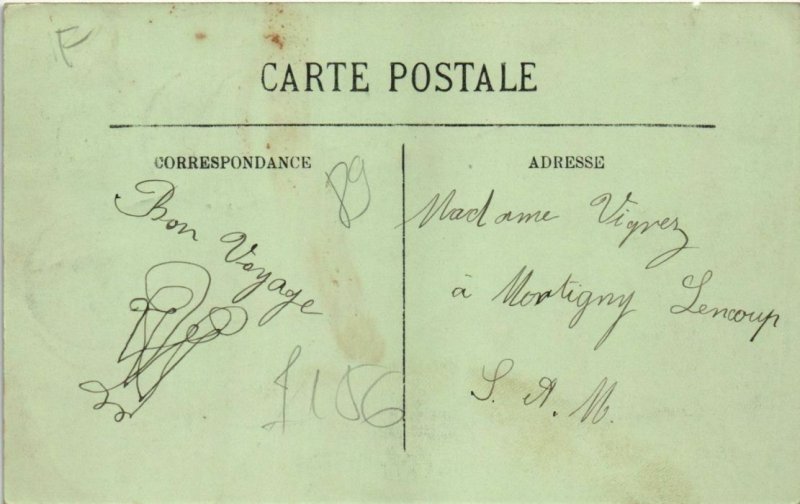 F
CARTE POSTALE
CORRESPONDANCE
89
Bon Voyage
£186
ADRESSE
Madame Vignez
à Montigny Lencoup
S. A. M.